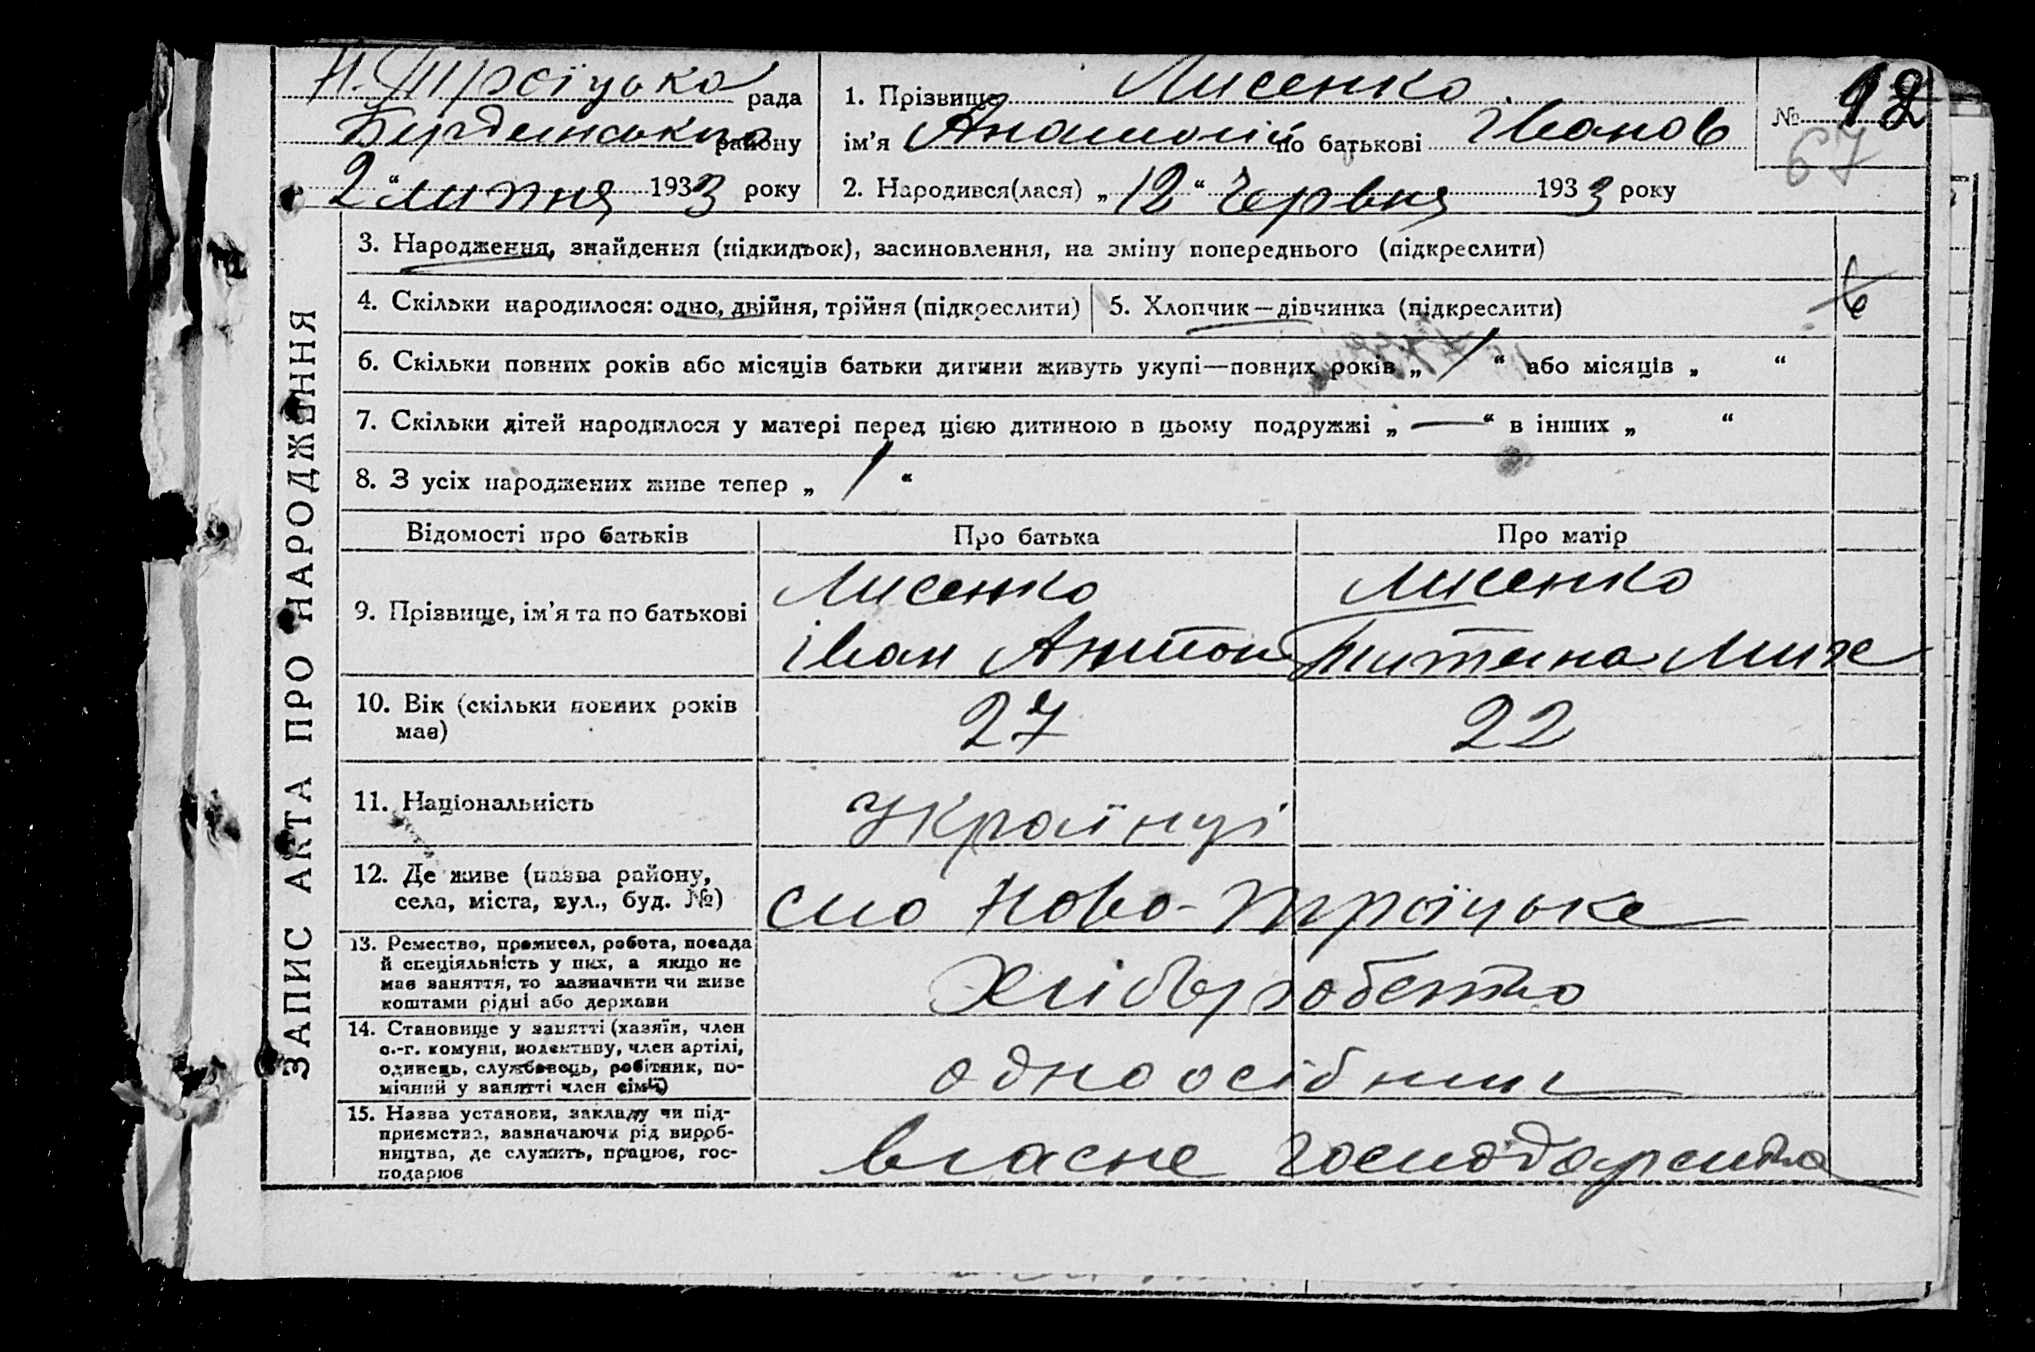 Н-Троїцька рада
Бердянського району
2 „ липня 1933 року
1. Прізвище Лисенко
ім’я Анатолій по батькові Іванов
2. Народився(лася) „12“ червня 1933 року
№ 12
67
ЗАПИС АКТА ПРО НАРОДЖЕННЯ
3. Народження, знайдення (підкидьок), засиновлення, на зміну попереднього (підкреслити)
4. Скільки народилося: одно, двійня, трійня (підкреслити)
5. Хлопчик—дівчинка (підкреслити)
6. Скільки повних років або місяців батьки дитини живуть укупі—повних років „ 1 “ або місяців „ “
7. Скільки дітей народилося у матері перед цією дитиною в цьому подружжі „ — “ в інших „ “
8. З усіх народжених живе тепер „ 1 “
Відомості про батьків
Про батька
Про матір
9. Прізвище, ім’я та по батькові
Лисенко
Іван Антон
Лисенко
Титяна Мих
10. Вік (скільки повних років
має)
27
22
11. Національність
Українці
12. Де живе (назва району,
села, міста, вул., буд. №)
сло Ново-Троїцьке
13. Ремество, промисел, робота, посада
й спеціяльність у них, а якщо не
має заняття, то зазначити чи живе
коштами рідні або держави
Хліборобство
14. Становище у занятті (хазяїн, член
с.-г. комуни, колективу, член артілі,
одинець, службовець, робітник, по-
мічний у занятті член сім’ї)
одноосібник
15. Назва установи, закладу чи під-
приємства, зазначаючи рід вироб-
ництва, де служить, працює, гос-
подарює
власне господарство